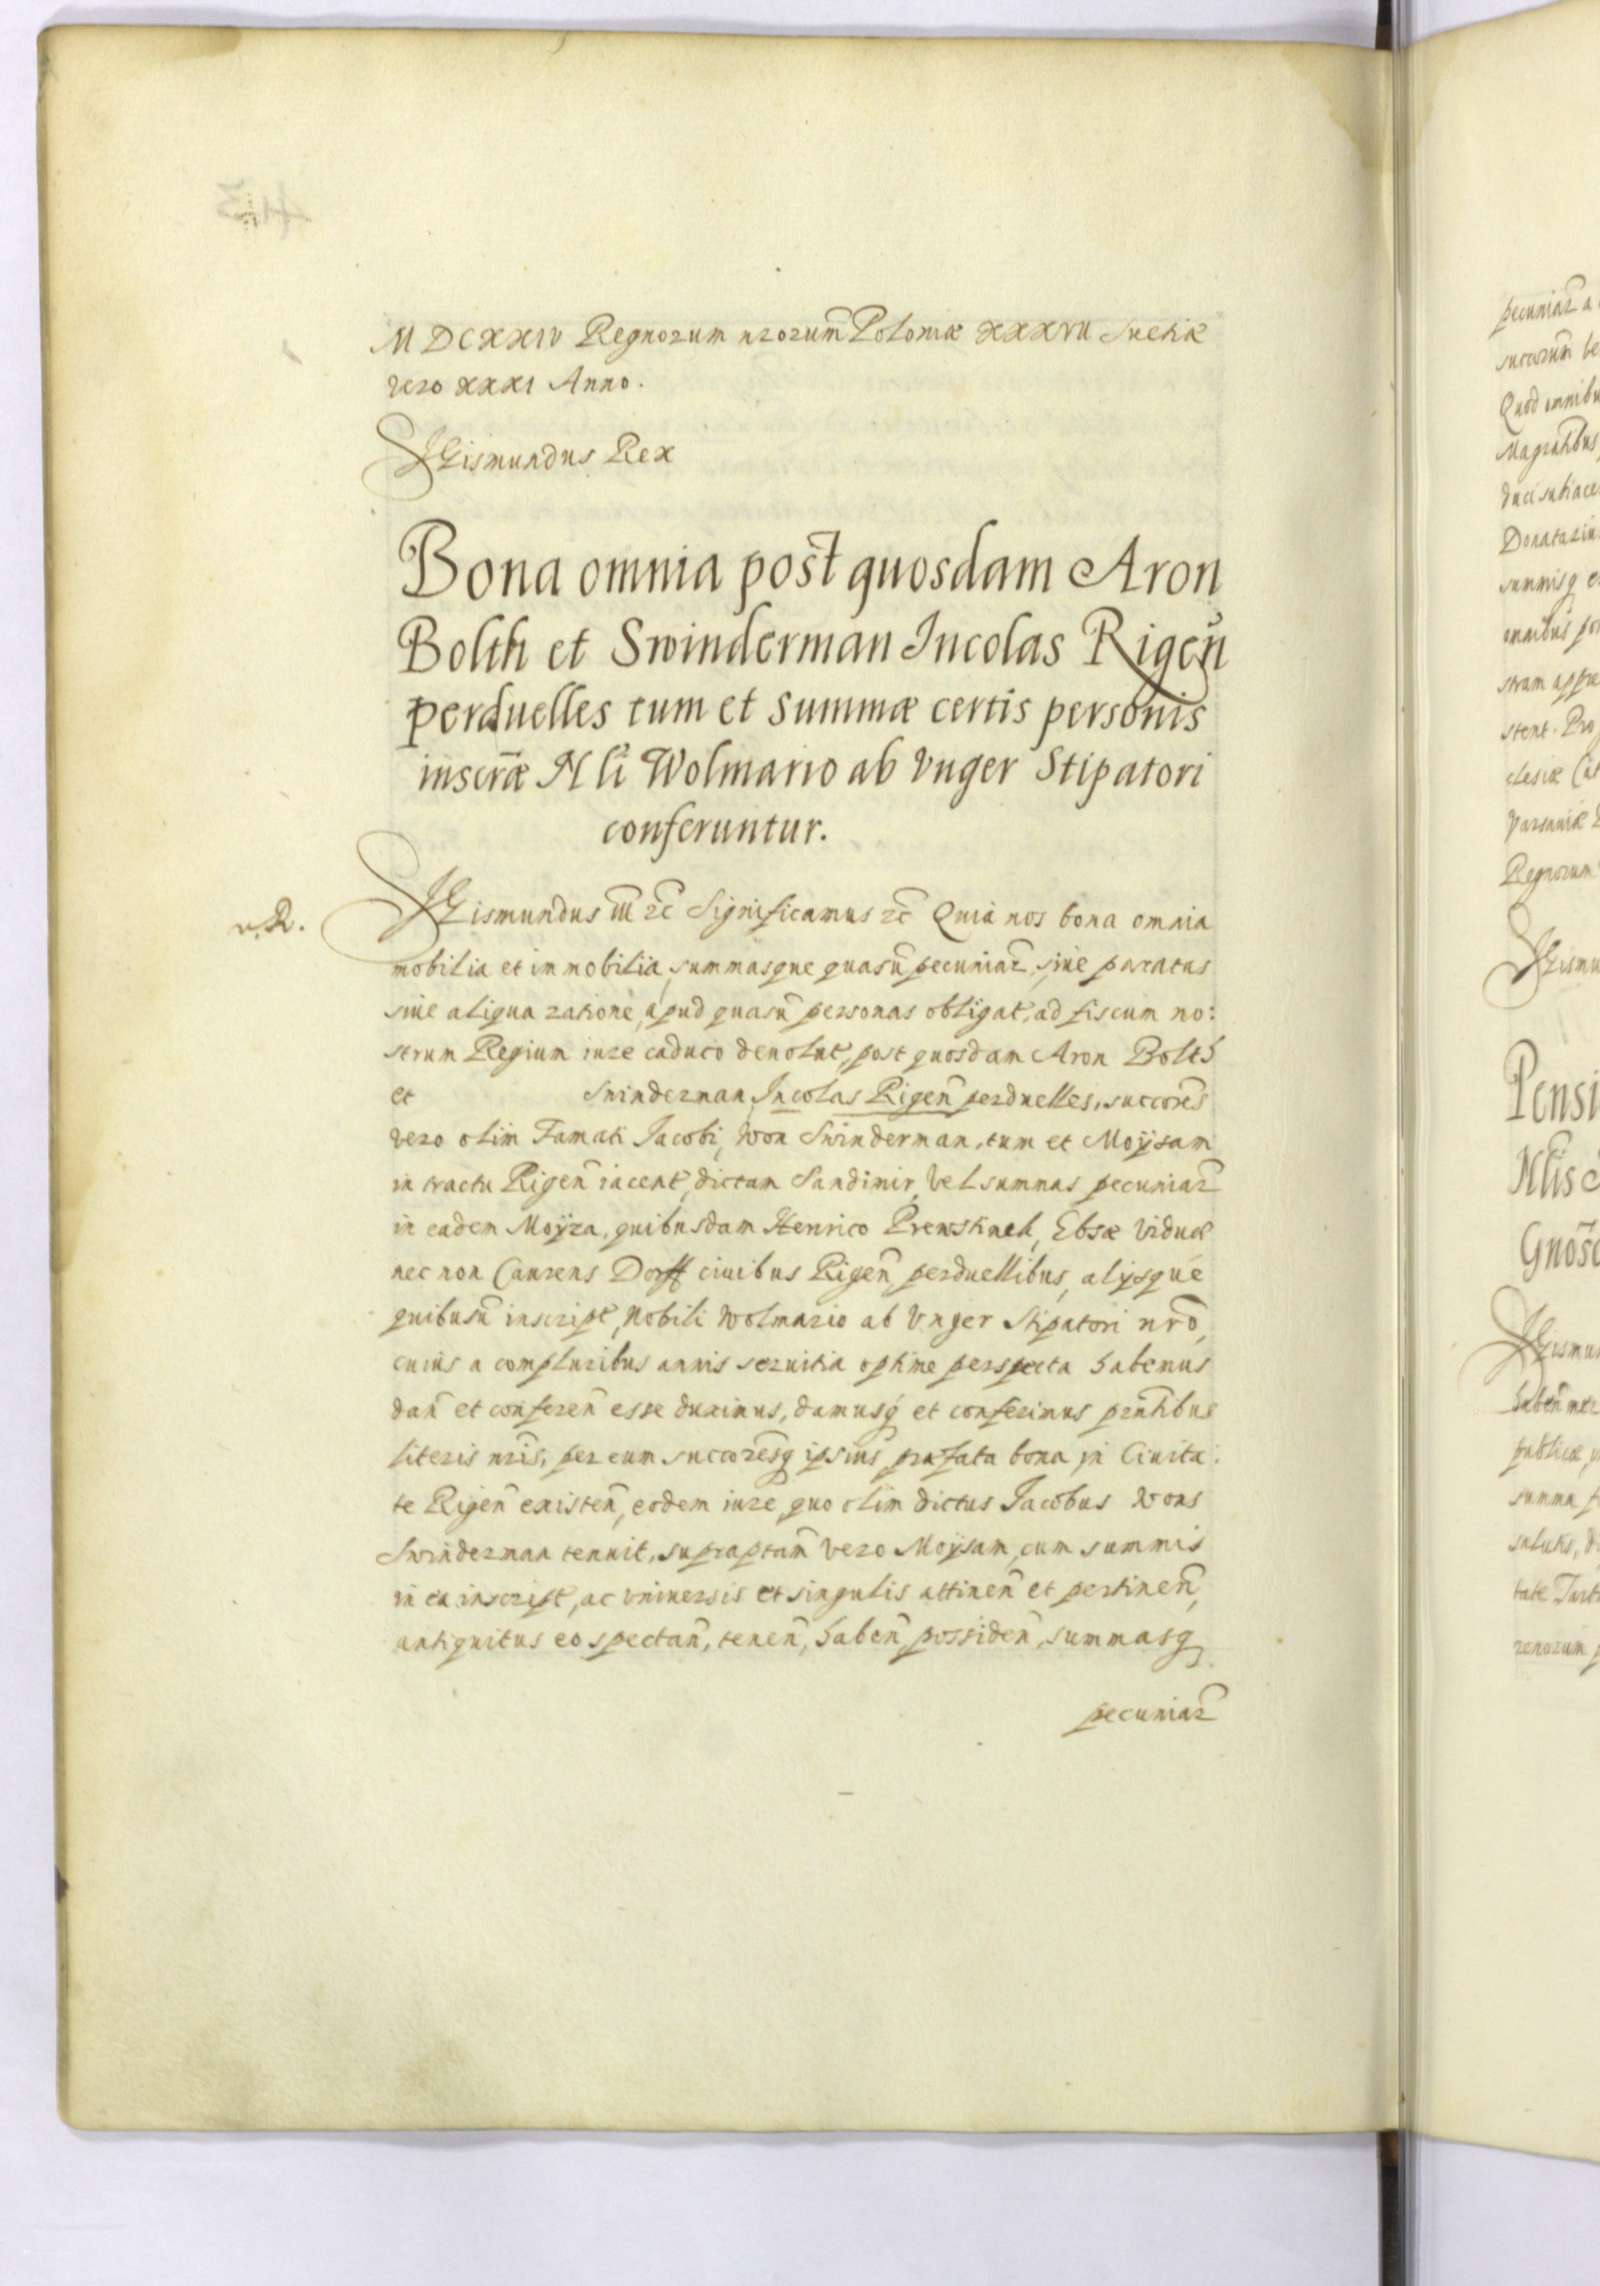 MDCXXIV Regnorum nrorum Poloniæ XXXVII Suetiæ
vero XXXI Anno.
SGismundus Rex
Bona omnia post quosdam Aron
Bolth et Swinderman Incolas Rigeñ
perduelles tum et summæ certis personis
inscrãe Nli Wolmario ab Vnger Stipatori
conferuntur.
v. R.
SGismundus III zc Significamus zc Quia nos bona omnia
mobilia et immobilia, summasque quasũ pecuniar, siue paratas
siue aliqua ratione, apud quasũ personas obligat, ad fiscum no:
strum Regium iure caduco deuolut, post quosdam Aron Bolth
et Swinderman, Incolas Rigeñ perduelles, succores
vero olim Famati Jacobi, Won Swinderman, tum et Moÿsam
in tractu Rigeñ iacent, dictam Sandimir, vel summas pecuniar
in eadem Moÿza, quibusdam Henrico Ebsæ Viduæ
nec non Caurens Dorff ciuibus Rigeñ perduellibus, alÿsque
quibusũ inscript, Nobili Wolmario ab Vnger Stipatori nrõ,
cuius a compluribus annis seruitia optime perspecta habemus
dañ et confereñ esse duximus, damusq et conferimus prñtibus
literis nrĩs, per eum succoresq ipsius præfata bona in Ciuita:
te Rigeñ existeñ, eodem iure, quo olim dictus Jacobus Wons
Swinderman tenuit, supraptam vero Moÿsam, cum summis
in ea inscript, ac vniuersis et singulis attineñ et pertineñ,
antiquitus eo spectañ, teneñ, habeñ possideñ, summasq
pecuniar
pecuniar a
succorum
Quod omnibu
Magratibus
Donatariu
summisq
omnibus
stram
stent. Pro
clesiæ
Varsauiæ
Regnorum
SGismu
Pensi
Nlis
Gnosc
SGismun
habeñ
publicæ
summa
salutis,
tate